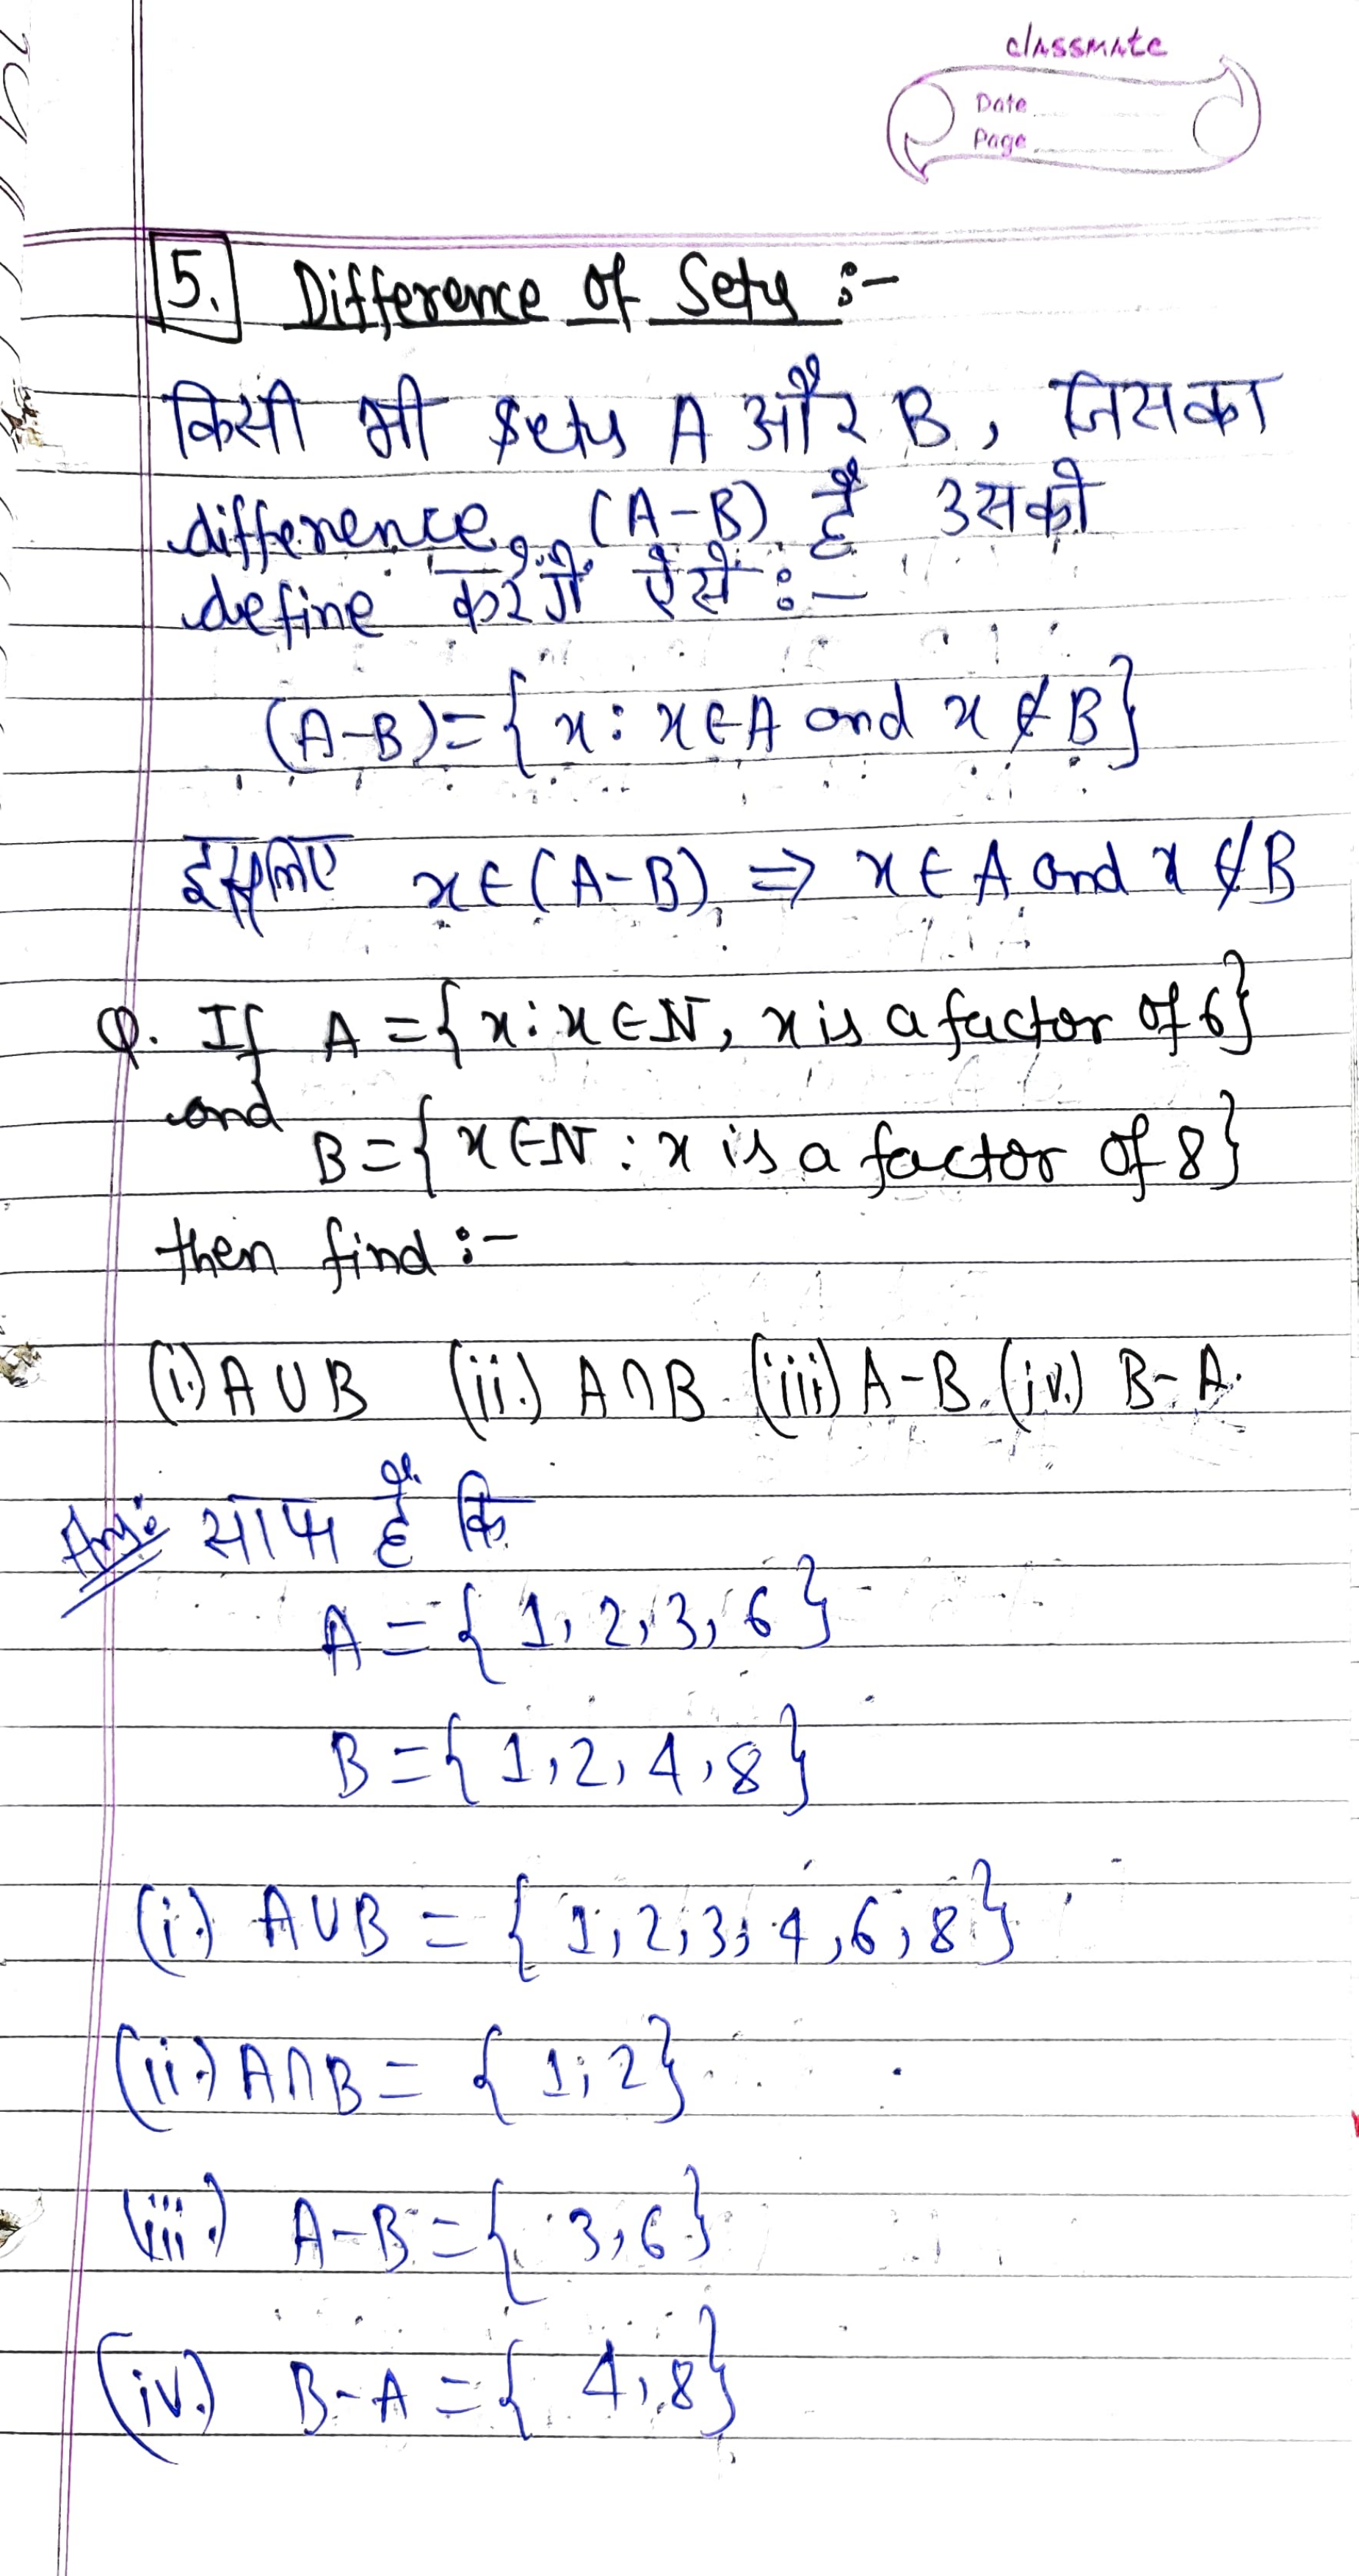 classmate
Date
Page
5. Difference of Sets :-
किसी भी sets A और B, जिसका
difference (A-B) है उसको
define करेंगे ऐसे :-
(A-B)={x: x∈A and x∉B}
इसलिए x∈(A-B) ⇒ x∈A and x∉B
Q. If A={x:x∈N, x is a factor of 6}
and
B={x∈N : x is a factor of 8}
then find :-
(i.) A∪B (ii.) A∩B (iii) A-B. (iv.) B-A.
Ans: साफ है कि
A={1,2,3,6}
B={1,2,4,8}
(i.) A∪B = {1,2,3,4,6,8}
(ii.) A∩B = {1,2}
(iii.) A-B={3,6}
(iv.) B-A={4,8}